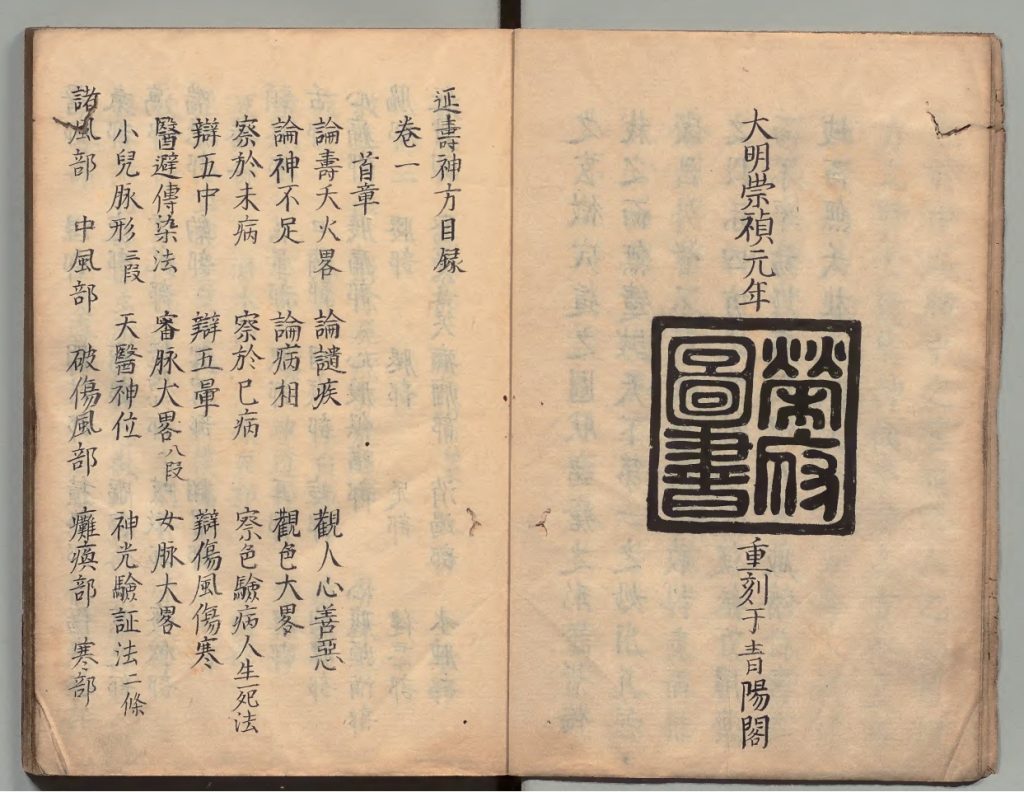 大明崇禎元年
榮府
圖書
重刻于青陽閣
延壽神方目録
卷一
首章
論壽夭火畧 論譴疾 觀人心善惡
論神不足 論病相 觀色大畧
察於未病 察於已病 察色驗病人生死法
辯五中 辯五暈 辯傷風傷寒
醫避傳染法 審脉大畧八段 女脉大畧
小兒脉形三段 天醫神位 神光驗証法二條
諸風部 中風部 破傷風部 癱瘓部 寒部